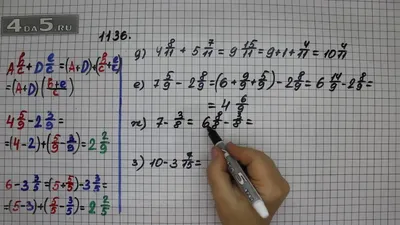 4ДА5.ru
1136.
A b/c + D e/c = (A+D)+(b/c + e/c)
= (A+D) (b+e)/c
4 5/9 - 2 3/9 =
= (4-2)+(5/9 - 3/9) = 2 2/9
6 - 3 3/5 = (5 + 5/5) - 3 3/5 =
= (5-3)+(5/5 - 3/5) = 2 2/5
д) 4 8/11 + 5 7/11 = 9 15/11 = 9+1+ 4/11 = 10 4/11
е) 7 5/9 - 2 8/9 = (6 + 9/9 + 5/9) - 2 8/9 = 6 14/9 - 2 8/9 =
= 4 6/9
ж) 7 - 3/8 = 6 8/8 - 3/8 =
з) 10 - 3 7/15 =